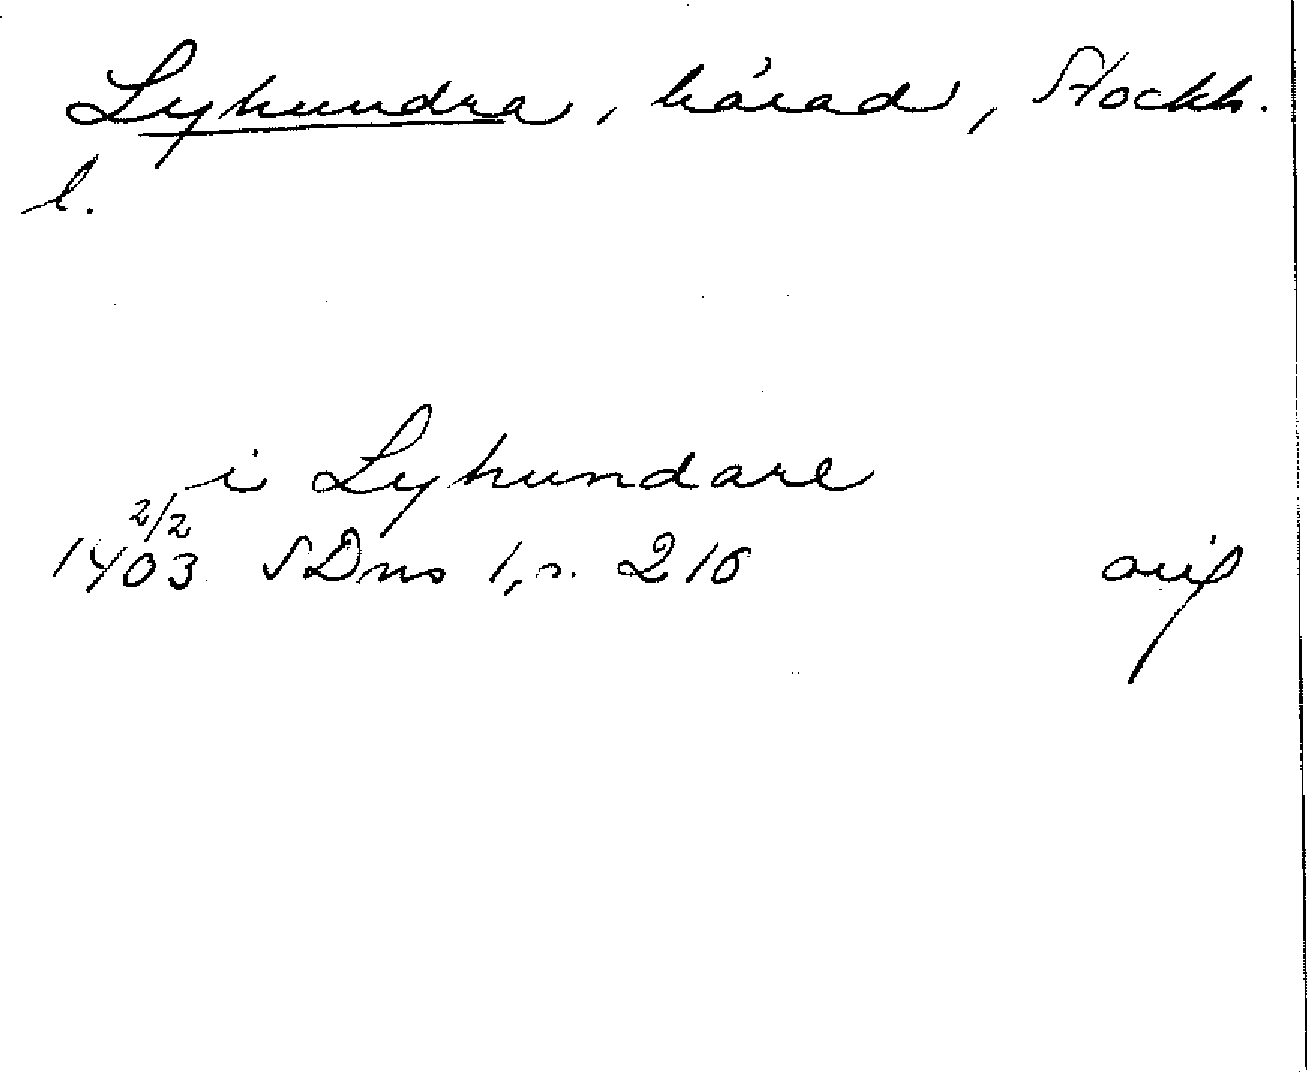 Lyhundra, härad, Stockh.
l.
i Lyhundare
2/2
1403 SDns 1, s. 216 avs